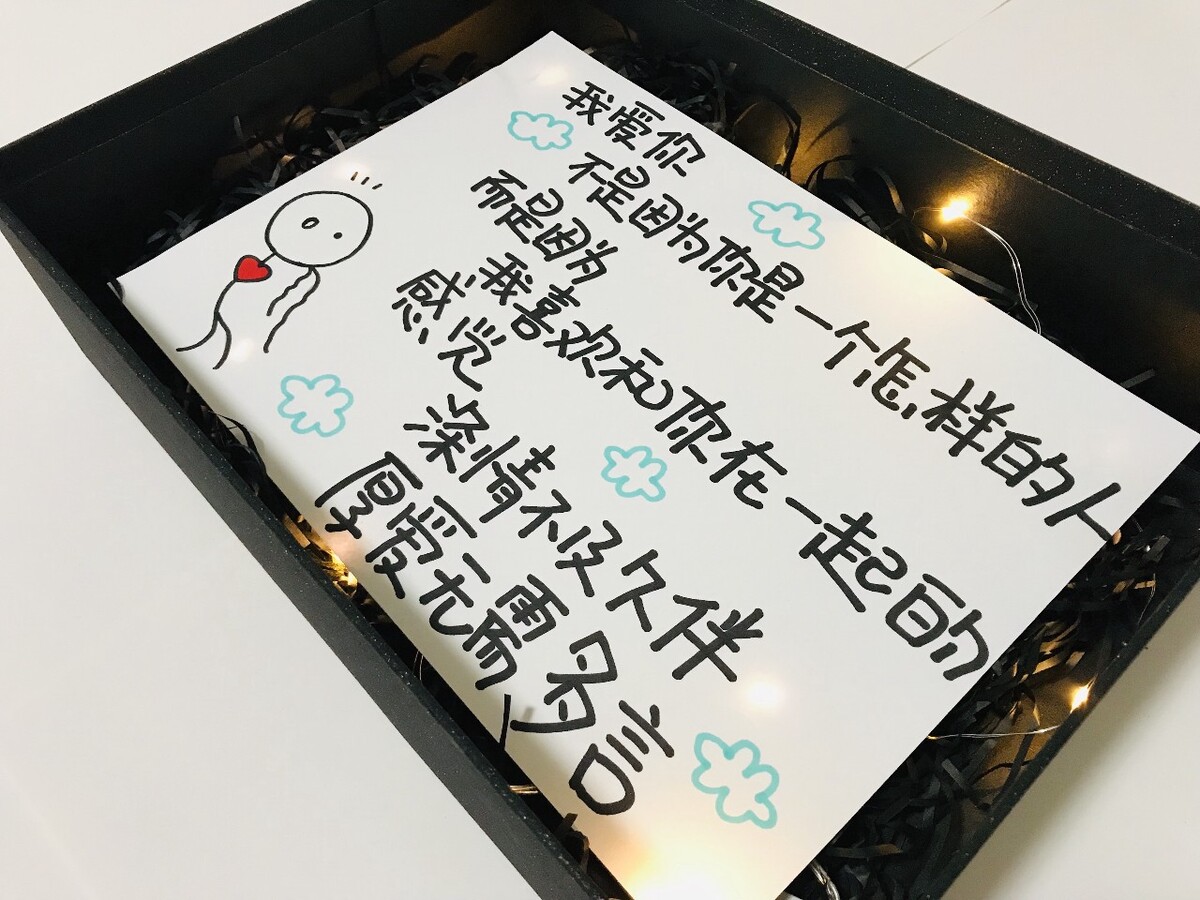 我爱你
不是因为你是一个怎样的人
而是因为
我喜欢和你在一起的
感觉
深情不及久伴
厚爱无需多言